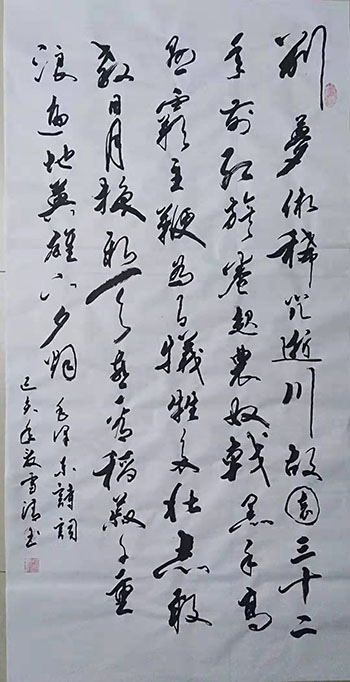 别夢依稀咒逝川故園三十二
年前红旗卷起農奴戟黑手高
悬霸主鞭为有犧牲多壮志敢
教日月换新天喜看稻菽千重
浪遍地英雄下夕烟
毛泽东詩詞
己亥年雪清书